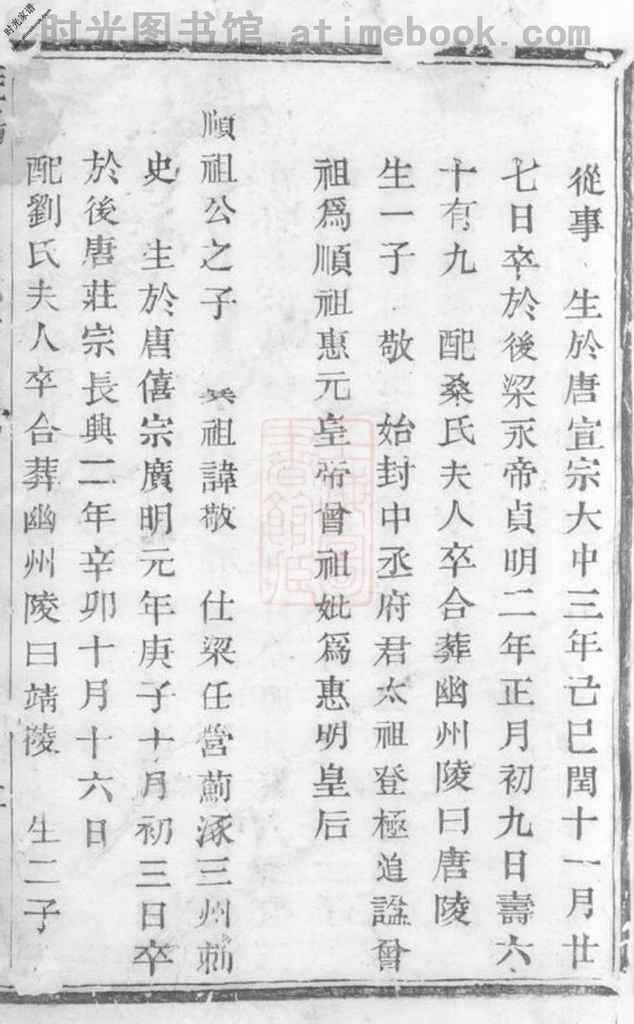 时光图书馆 atimebook.com
时光家谱
從事 生於唐宣宗大中三年己巳閏十一月廿
七日卒於後梁末帝貞明二年正月初九日壽六
十有九 配桑氏夫人卒合葬幽州陵曰唐陵
生一子 敬 始封中丞府君太祖登極追諡曾
祖爲順祖惠元皇帝曾祖妣爲惠明皇后
順祖公之子 祖諱敬 仕梁任營薊涿三州刺
史 生於唐僖宗廣明元年庚子十月初三日卒
於後唐莊宗長興二年辛卯十月十六日
配劉氏夫人卒合葬幽州陵曰靖陵 生二子